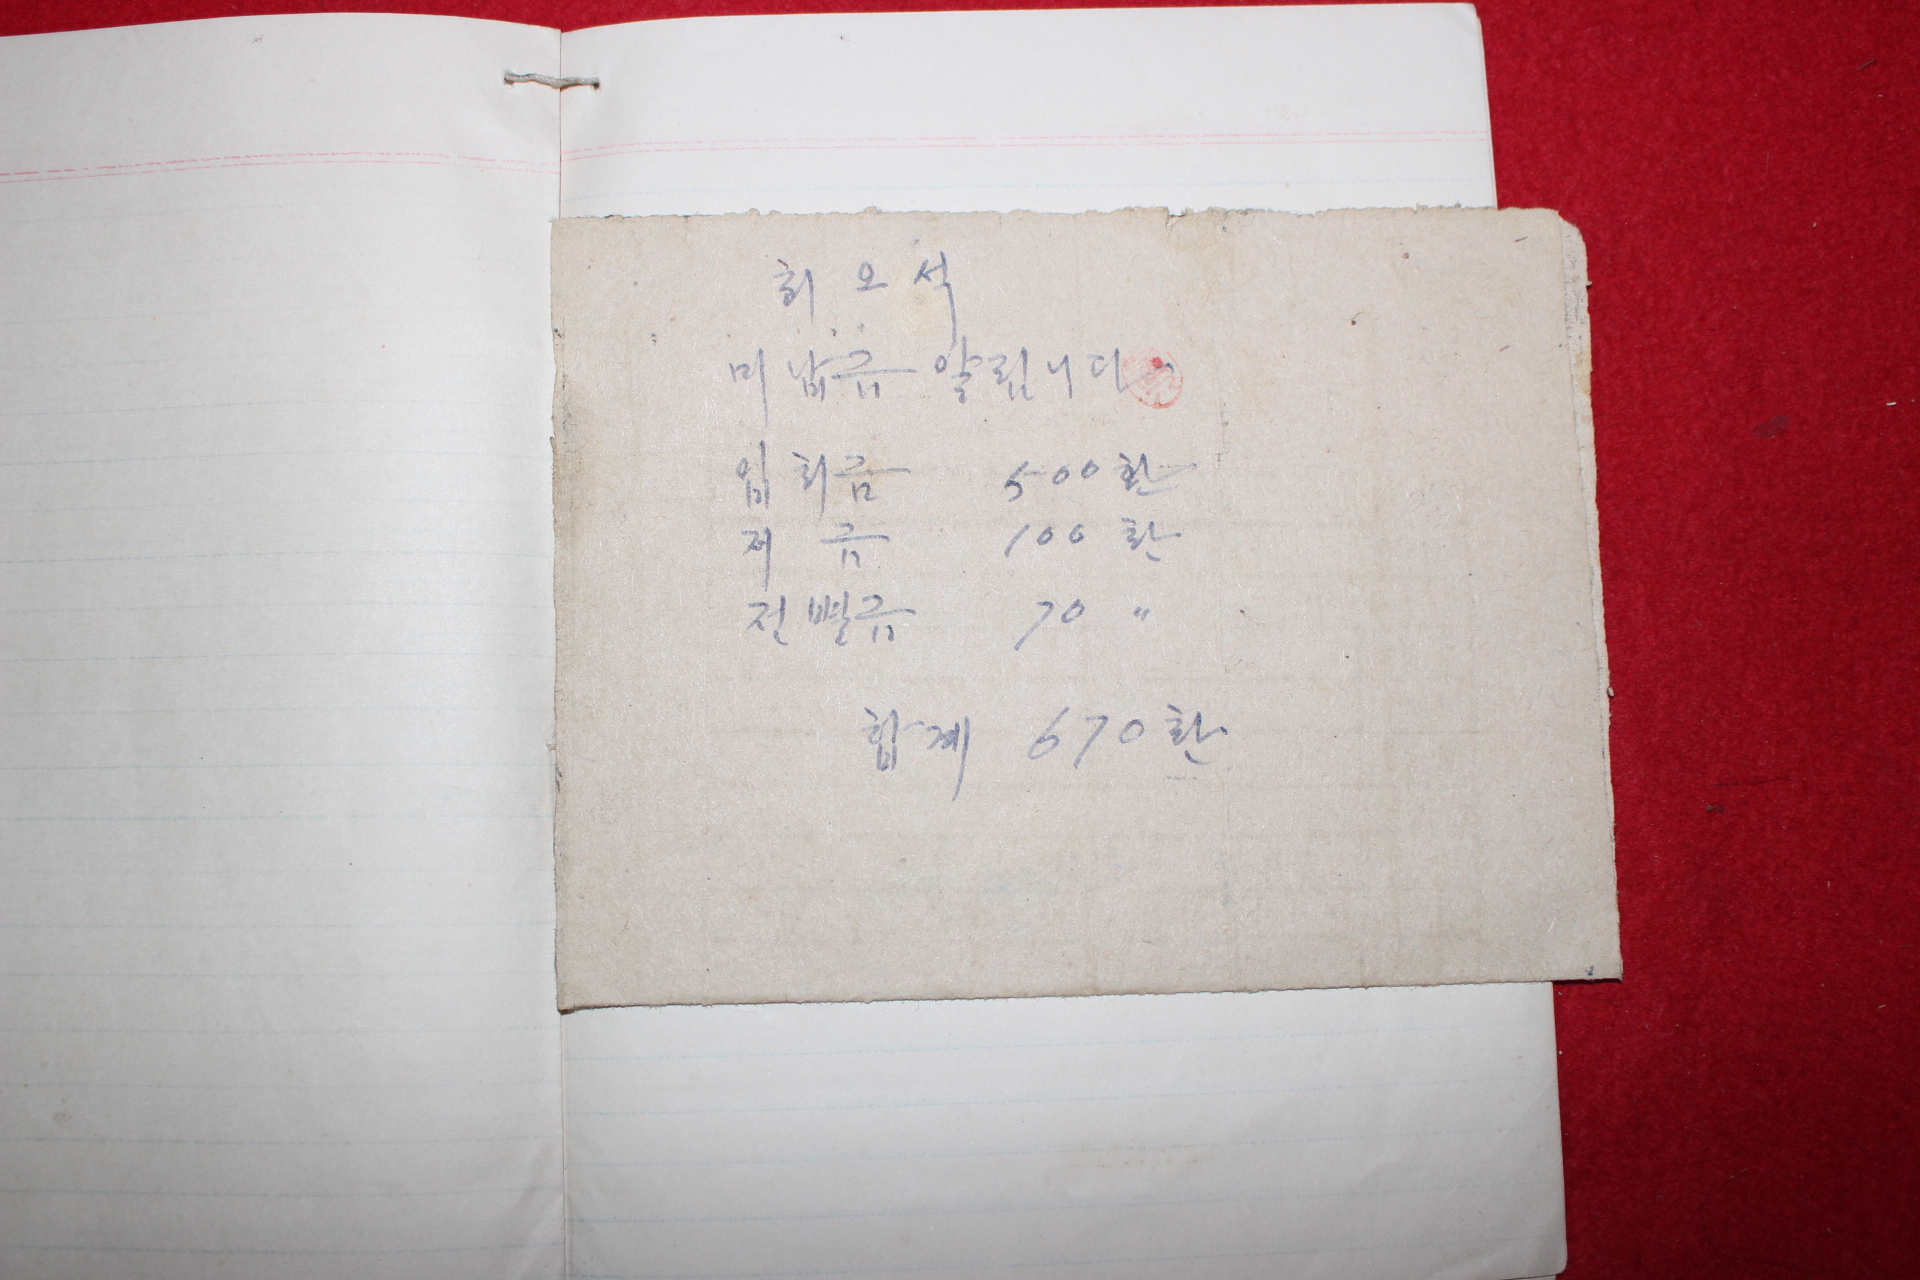 최 오 석
미납금 알립니다
입회금 500환
저 금 100환
전별금 70 〃
합계 670환